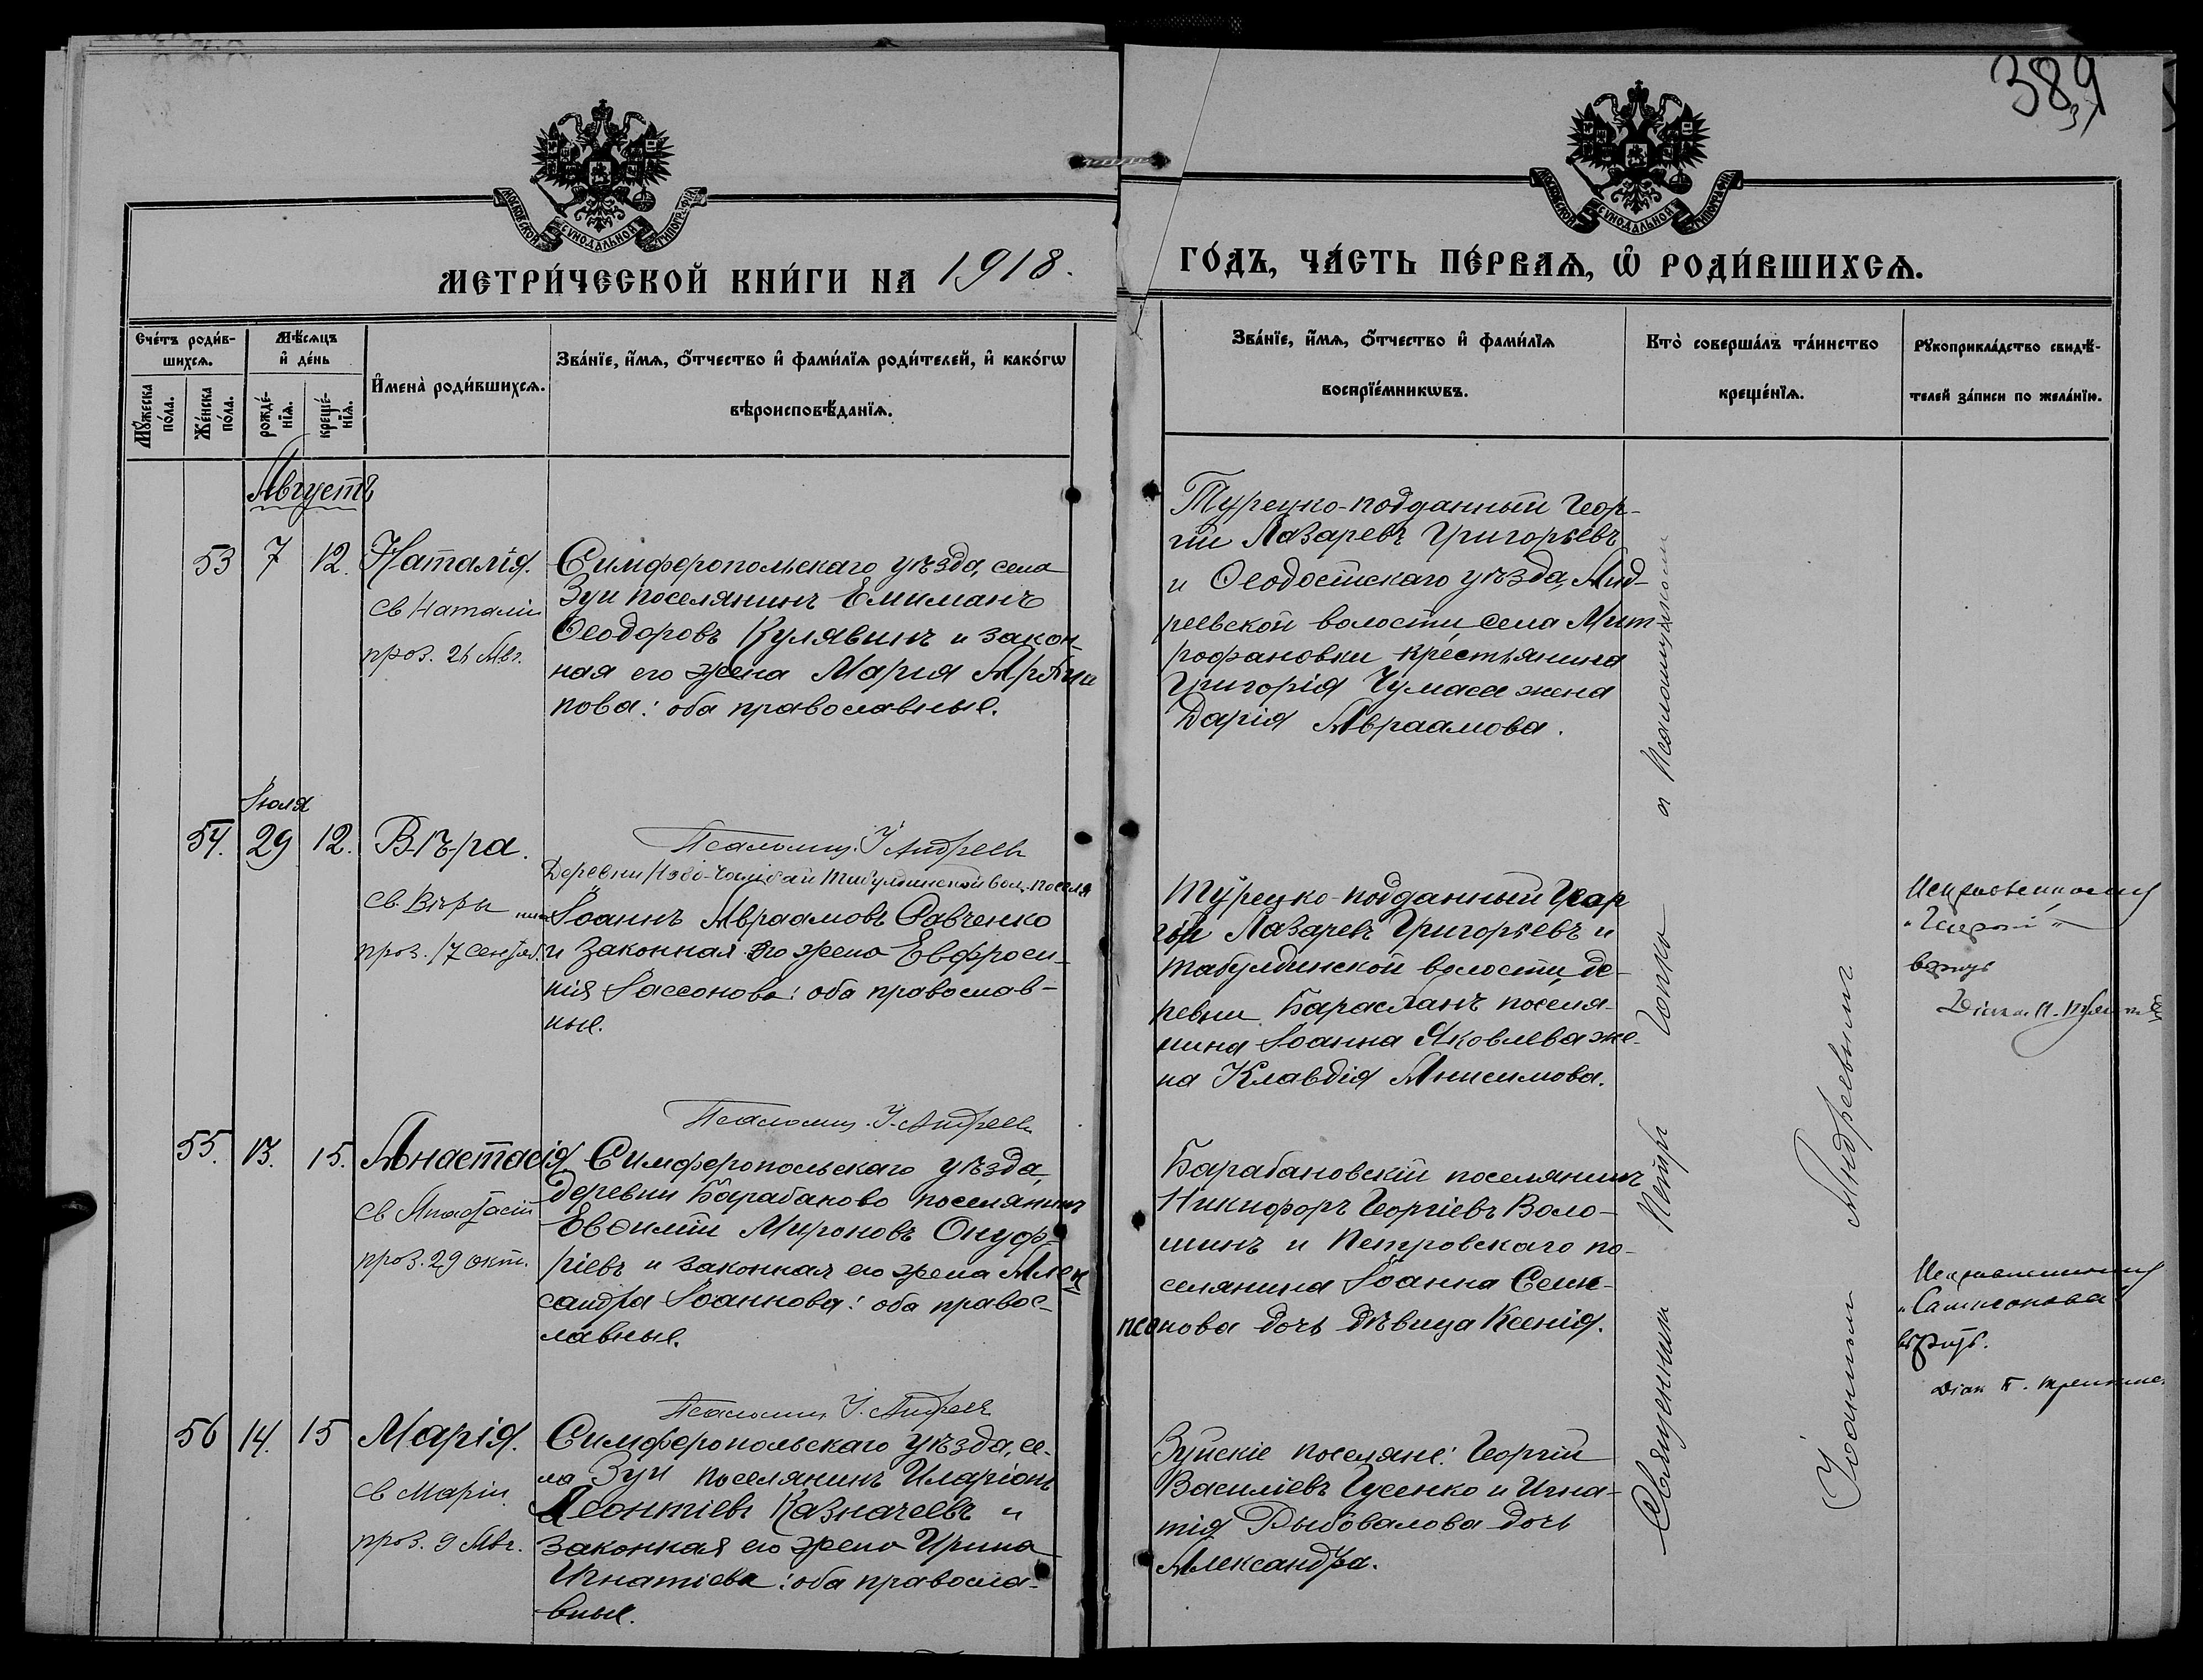 389
МОСКОВСКОЙ СѴНОДАЛЬНОЙ ТИПОГРАФІИ
МОСКОВСКОЙ СѴНОДАЛЬНОЙ ТИПОГРАФІИ
МЕТРИ́ЧЕСКОЙ КНИ́ГИ НА 1918.
ГО́ДЪ, ЧА́СТЬ ПЕ́РВАѦ, Ѽ РОДИ́ВШИХСѦ.
Сче́тъ роди́в-
шихсѧ.
Мѣ́сѧцъ
и҆ де́нь
Мꙋ́жеска
по́ла.
Же́нска
по́ла.
рожде́-
нїѧ.
креще́-
нїѧ.
И҆мена̀ роди́вшихсѧ.
Зва́нїе, и҆́мѧ, ѻ҆́тчество и҆ фами́лїѧ роди́телей, и҆ како́гѡ
вѣроисповѣ́данїѧ.
Зва́нїе, и҆́мѧ, ѻ҆́тчество и҆ фами́лїѧ
воспрїе́мникѡвъ.
Кто̀ соверша́лъ та́инство
креще́нїѧ.
Рꙋкоприкла́дство свидѣ́-
телей за́писи по жела́нїю.
Августъ
53 7 12. Наталія.
св Наталіи
праз. 26 Авг.
Симферопольскаго уѣзда, села
Зуи поселянинъ Емиліанъ
Ѳеодоровъ Кулявинъ и закон-
ная его жена Марія
пова: оба православные.
Турецко-подданный Геор-
гій Лазаревъ Григорьевъ
и Ѳеодосійскаго уѣзда, Анд-
реевской волости села Мит
рофановки крестьянина
Григорія Чумаса жена
Дарія Авраамова.
Іюля
54. 29 12. Вѣра.
св Вѣры
праз. 17 Сентяб.
Псаломщ. І Андреевъ
Деревни Ново- Табулдинской вол. поселя
нинъ Іоаннъ Авраамовъ Савченко
и законная его жена Евфроси-
нія Іассонова: оба православ-
ные.
Турецко-подданный Геор
гій Лазаревъ Григорьевъ и
Табулдинской волости, де-
ревни Барасланъ поселя-
нина Іоанна Яковлева же-
на Клавдія Анисимова.
Исправленному
"Георгій"
вѣрить
55. 13. 15. Анастасія
св Анастасіи
праз. 29 окт.
Псаломщ. І. Андреевъ
Симферопольскаго уѣзда,
деревни Барабаново поселянинъ
Евѳимій Мироновъ Онуф-
ріевъ и законная его жена Алек
сандра Іоаннова: оба правос-
лавные.
Барабановскій поселянинъ
Никифоръ Георгіевъ Воло-
шинъ и Петровскаго по-
селянина Іоанна Семи-
нова дочь дѣвица Ксенія.
Исправленному
вѣрить.
56 14. 15 Марія.
св Маріи
праз. 9 Авг.
Псаломщ І. Андреевъ
Симферопольскаго уѣзда, се-
ла Зуи поселянинъ Иларіонъ
Леонтіевъ Казначеевъ и
законная его жена Ирина
Игнатіева: оба правосла-
вные.
Зуйскіе поселяне: Георгій
Василіевъ Гусенко и Игна-
тія Рыбовалова дочь
Александра.
Священникъ Петръ и Псаломщикъ
Іоаннъ Андреевичъ